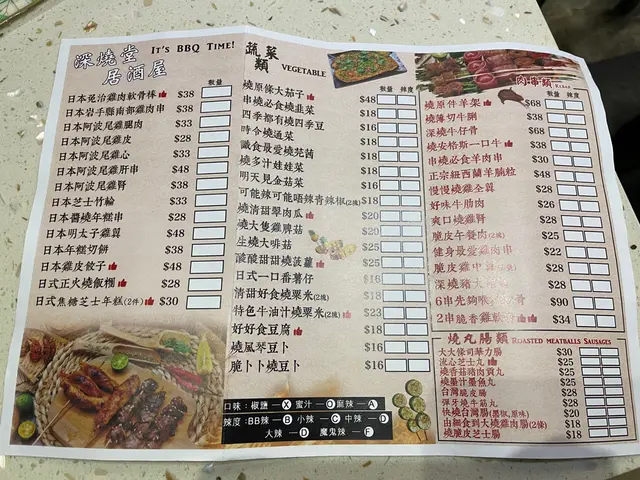 深燒堂
居酒屋
IT'S BBQ TIME!
數量
日本兔治雞肉軟骨棒 $38
日本岩手縣南部雞肉串 $38
日本阿波尾雞腿肉 $33
日本阿波尾雞皮 $28
日本阿波尾雞心 $33
日本阿波尾雞肝串 $48
日本阿波尾雞腎 $38
日本芝士竹輪 $33
日本醬燒年糕串 $28
日本明太子雞翼 $48
日本年糕切餅 $38
日本雞皮餃子 $48
日式正火燒飯糰 $28
日式焦糖芝士年糕(2件) $30
蔬菜類 VEGETABLE
數量 辣度
燒原條大茄子 $48
串燒必食燒韭菜 $18
四季都有燒四季豆 $16
時令燒通菜 $18
識食最愛燒芫茜 $18
燒多汁娃娃菜 $18
明天見金菇菜 $16
可能辣可能唔辣青辣椒(2塊) $18
燒清甜翠肉瓜 $20
燒大隻雞髀菇 $20
生燒大啡菇 $25
酸酸甜甜燒菠蘿 $25
日式一口番薯仔 $16
清甜好食燒粟米(2塊) $18
特色牛油汁燒粟米(2塊) $23
好好食豆腐 $18
燒風琴豆卜 $16
脆卜卜燒豆卜 $16
口味：椒鹽 — X 蜜汁 — O 麻辣 — A
辣度：BB辣 — B 小辣 — C 中辣 — D
大辣 — D 魔鬼辣 — F
肉串類 KEBAB
數量 辣度
燒原件羊架 $68
燒薄切牛脷 $38
深燒牛仔骨 $68
燒安格斯一口牛 $38
串燒必食羊肉串 $30
正宗紐西蘭羊腩粒 $48
慢慢燒雞全翼 $28
好味牛肋肉 $26
爽口燒雞腎 $28
脆皮午餐肉(2塊) $25
健身最愛雞肉串 $22
脆皮雞中 $28
深燒豬大 $28
6串先夠喉 骨 $90
2串脆香雞軟骨 $34
燒丸腸類 ROASTED MEATBALLS SAUSAGES
大大條司華力腸 $30
流心芝士丸 $25
燒香菇豬肉貢丸 $25
燒墨汁墨魚丸 $25
台灣脆皮腸 $28
彈牙燒牛筋丸 $28
快燒台灣腸(黑椒,原味) $20
由細食到大燒雞肉腸(2條) $18
燒脆皮芝士腸 $18